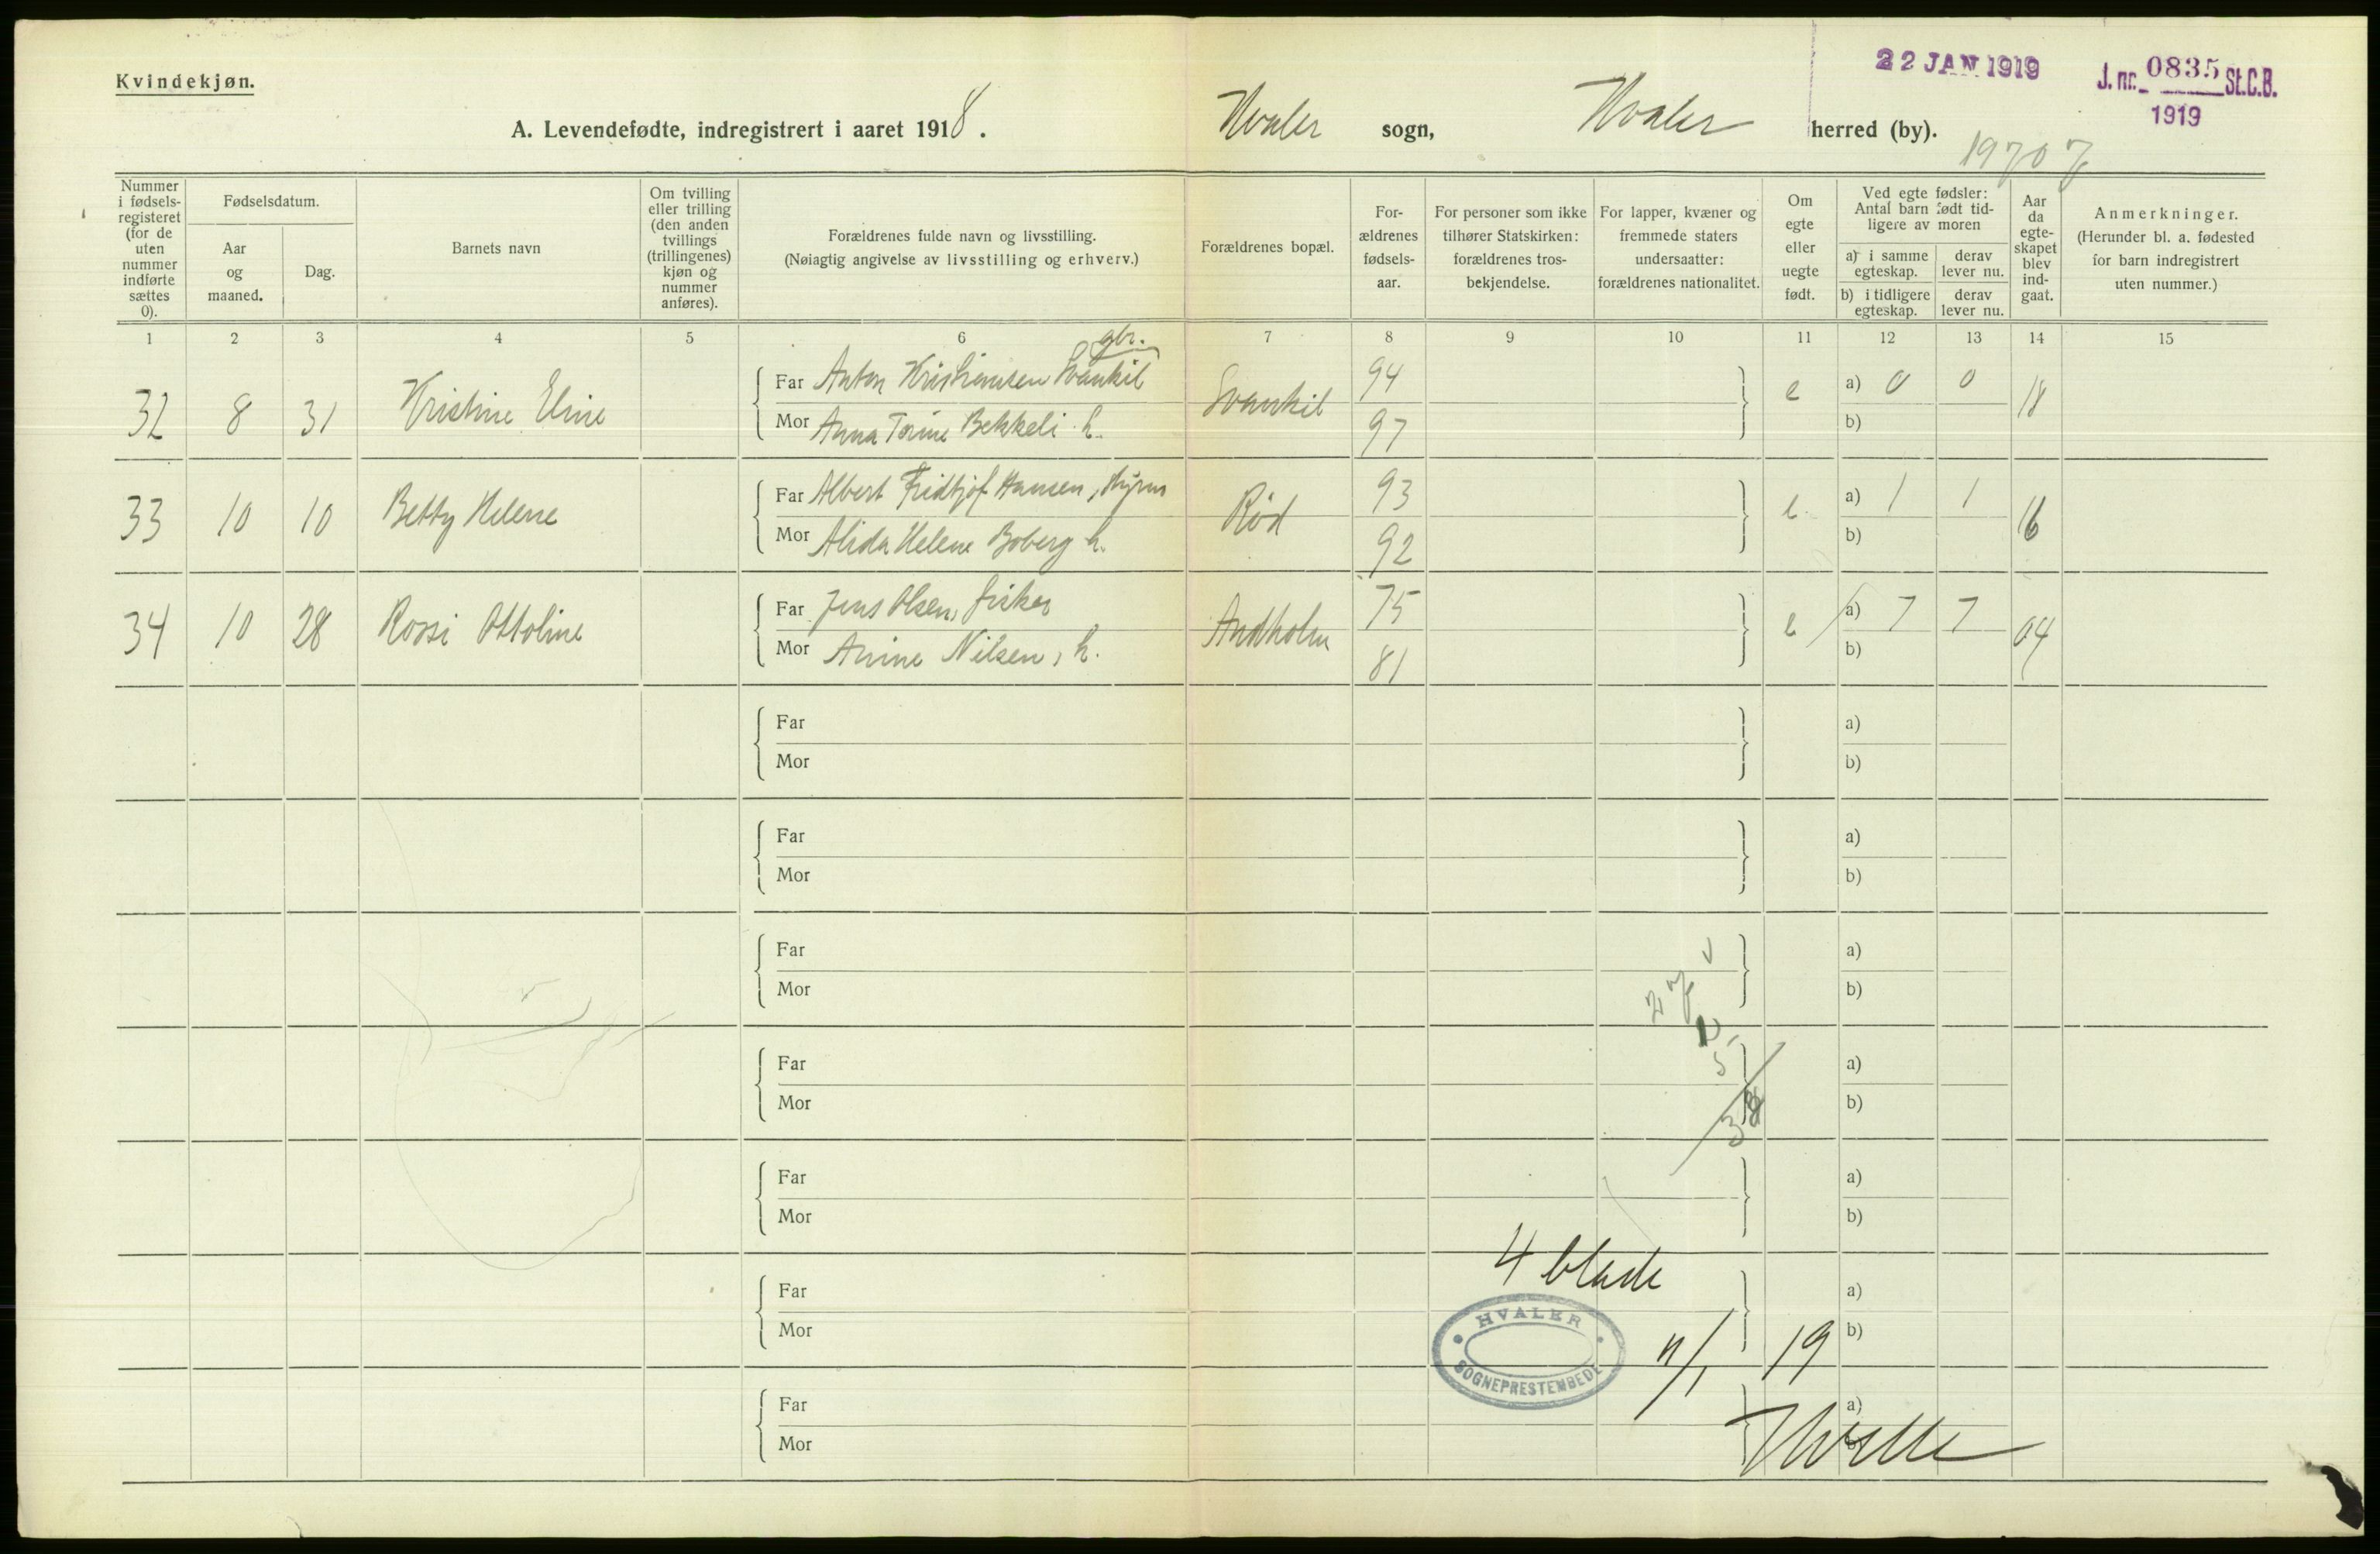 Kvindekjøn.
22 JAN 1919
J. nr. 0835 St.C.B.
1919
A. Levendefødte, indregistrert i aaret 1918. Hvaler sogn, Hvaler herred (by).
19707
Nummer i fødsels-registeret (for de uten nummer indførte sættes 0).
Fødselsdatum.
Aar og maaned.
Dag.
Barnets navn
Om tvilling eller trilling (den anden tvillings (trillingenes) kjøn og nummer anføres).
Forældrenes fulde navn og livsstilling.
(Nøiagtig angivelse av livsstilling og erhverv.)
Forældrenes bopæl.
For-ældrenes fødsels-aar.
For personer som ikke tilhører Statskirken: forældrenes tros-bekjendelse.
For lapper, kvæner og fremmede staters undersaatter: forældrenes nationalitet.
Om egte eller uegte født.
Ved egte fødsler: Antal barn født tid-ligere av moren
a) i samme egteskap.
derav lever nu.
b) i tidligere egteskap.
derav lever nu.
Aar da egte-skapet blev ind-gaat.
Anmerkninger.
(Herunder bl. a. fødested for barn indregistrert uten nummer.)
1 2 3 4 5 6 7 8 9 10 11 12 13 14 15
gbr.
32 8 31 Kristine Eline Far Anton Kristiansen Svankil Svankil 94 e a) 0 0 18
Mor Anna Torine Bekkeli h. 97 b)
33 10 10 Betty Helene Far Albert Fridtjof Hansen, Rød 93 e. a) 1 1 16
Mor Alida Helene Boberg h. 92 b)
34 10 28 Rossi Ottoline Far Jens Olsen, fisker Andholm 75 e a) 7 7 04
Mor Anine Nilsen, h. 81 b)
Far a)
Mor b)
Far a)
Mor b)
Far a)
Mor b)
27
5
Far a)
Mor b)
38
Far a)
Mor b)
4 blade
Far a)
Mor b)
HVALER
SOGNEPRESTEMBEDE
11/1 19
Far a)
Mor b)